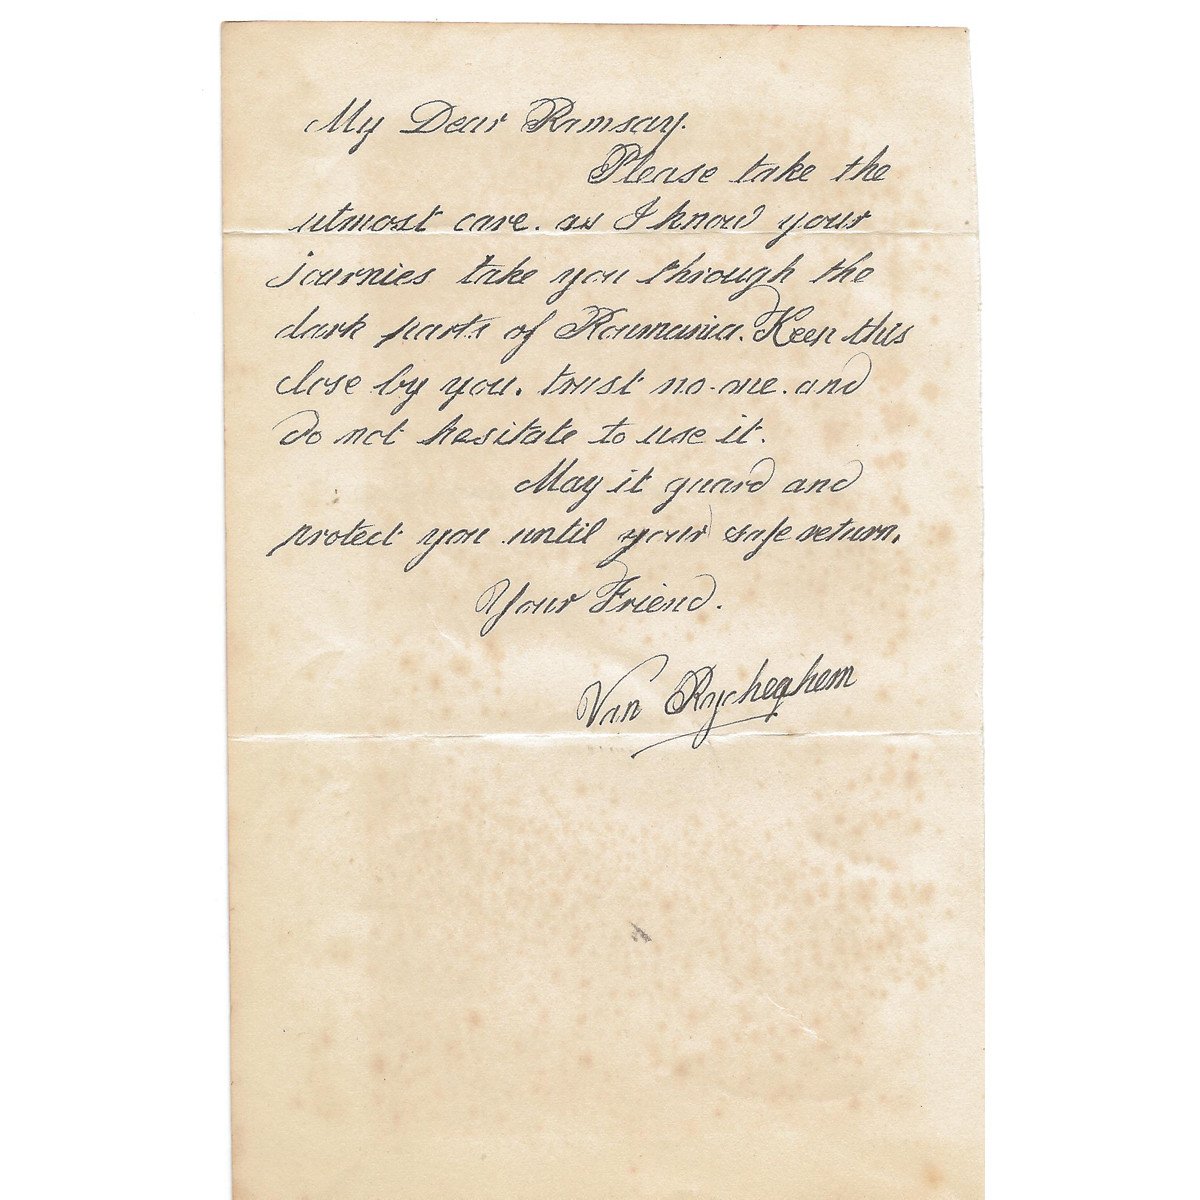 My Dear Ramsay.
Please take the
utmost care. as I know your
journies take you through the
dark parts of Roumania. Keep this
close by you. trust no-one. and
do not hesitate to use it.
May it guard and
protect you until your safe return.
Your Friend.
Van Rycheghem